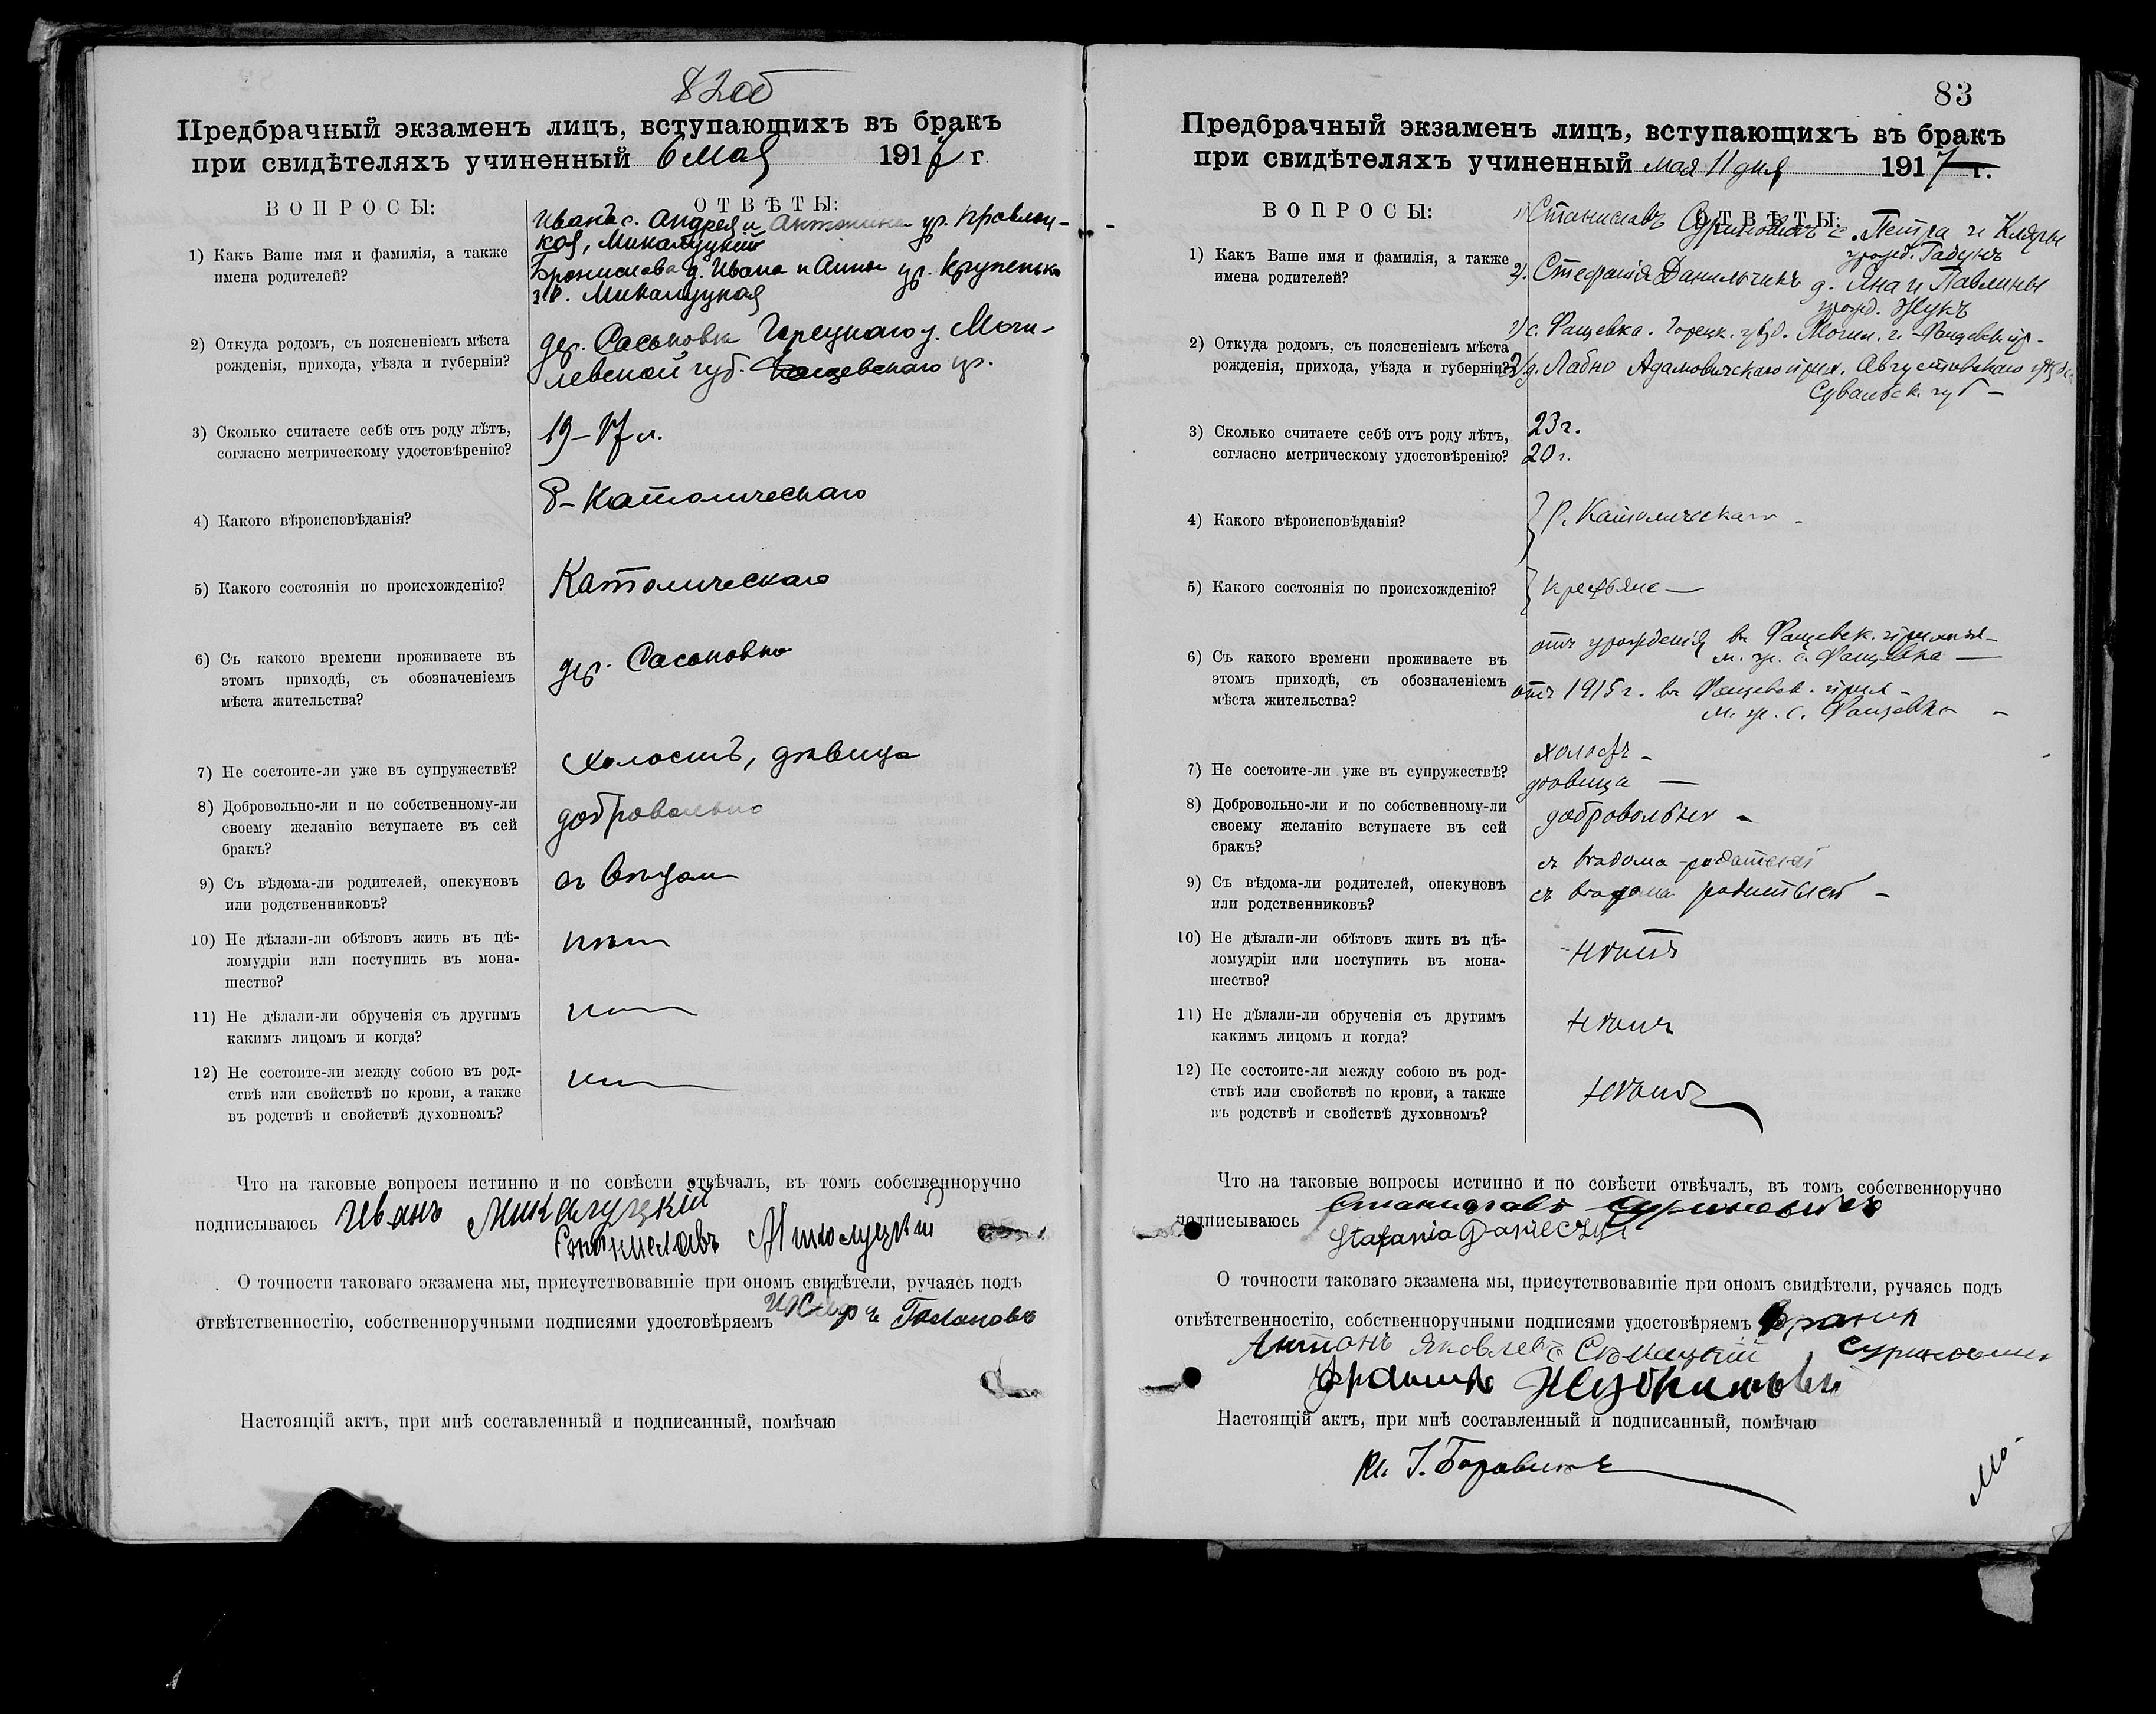 82об
Предбрачный экзаменъ лицъ, вступающихъ въ бракъ
при свидѣтеляхъ учиненный 6 мая 1917 г
ВОПРОСЫ:
ОТВѢТЫ:
1) Какъ Ваше имя и фамилія, а также
имена родителей?
Иванъ с. Андрея и Антонины ур.
кая, Микалуцкій
Бронислава д. Ивана и Анны ур. Крупенько
Микалуцкая
2) Откуда родомъ, съ поясненіемъ мѣста
рожденія, прихода, уѣзда и губерніи?
дер. Саськовка Горецкаго у. Моги-
левской губ. Фащевскаго пр.
3) Сколько считаете себѣ отъ роду лѣтъ,
согласно метрическому удостовѣренію?
19–17 л.
4) Какого вѣроисповѣданія?
Р-Католическаго
5) Какого состоянія по происхожденію?
Католическаго
6) Съ какого времени проживаете въ
этомъ приходѣ, съ обозначеніемъ
мѣста жительства?
дер. Саськовка
7) Не состоите-ли уже въ супружествѣ?
холостъ, дѣвица
8) Добровольно-ли и по собственному-ли
своему желанію вступаете въ сей
бракъ?
добровольно
9) Съ вѣдома-ли родителей, опекуновъ
или родственниковъ?
съ вѣдома
10) Не дѣлали-ли обѣтовъ жить въ цѣ-
ломудріи или поступить въ мона-
шество?
нѣтъ
11) Не дѣлали-ли обрученія съ другимъ
какимъ лицомъ и когда?
нѣтъ
12) Не состоите-ли между собою въ род-
ствѣ или свойствѣ по крови, а также
въ родствѣ и свойствѣ духовномъ?
нѣтъ
Что на таковые вопросы истинно и по совѣсти отвѣчалъ, въ томъ собственноручно
подписываюсь Иванъ Микалуцкій
Станиславъ Миколуцкій
О точности таковаго экзамена мы, присутствовавшіе при ономъ свидѣтели, ручаясь подъ
отвѣтственностію, собственноручными подписями удостовѣряемъ
Настоящій актъ, при мнѣ составленный и подписанный, помѣчаю
83
Предбрачный экзаменъ лицъ, вступающихъ въ бракъ
при свидѣтеляхъ учиненный мая 11 дня 1917 г.
ВОПРОСЫ:
ОТВѢТЫ:
1) Какъ Ваше имя и фамилія, а также
имена родителей?
1) Станиславъ Суриновичъ с. Петра и Клары
урожд. Гадунъ
2) Стефанія Данильчикъ д. Яна и Павлины
урожд. Жукъ
2) Откуда родомъ, съ поясненіемъ мѣста
рожденія, прихода, уѣзда и губерніи?
1) с. Фащевка. Горецк. уѣзд. Могил. г. Фащевск. пр-
2) д. Лабно Адамовичскаго прих. Августовскаго уѣзда
Сувальск. губ –
3) Сколько считаете себѣ отъ роду лѣтъ,
согласно метрическому удостовѣренію?
23 г.
20 г.
4) Какого вѣроисповѣданія?
Р. Католическаго –
5) Какого состоянія по происхожденію?
крестьяне –
6) Съ какого времени проживаете въ
этомъ приходѣ, съ обозначеніемъ
мѣста жительства?
отъ урожденія въ Фащевск. приходѣ –
м. ж. с. Фащевка –
отъ 1915 г. въ Фащевск. прих –
м. ж. с. Фащевка –
7) Не состоите-ли уже въ супружествѣ?
холостъ –
дѣвица –
8) Добровольно-ли и по собственному-ли
своему желанію вступаете въ сей
бракъ?
добровольно –
9) Съ вѣдома-ли родителей, опекуновъ
или родственниковъ?
съ вѣдома родителей
съ вѣдома родителей –
10) Не дѣлали-ли обѣтовъ жить въ цѣ-
ломудріи или поступить въ мона-
шество?
нѣтъ
11) Не дѣлали-ли обрученія съ другимъ
какимъ лицомъ и когда?
нѣтъ
12) Не состоите-ли между собою въ род-
ствѣ или свойствѣ по крови, а также
въ родствѣ и свойствѣ духовномъ?
нѣтъ
Что на таковые вопросы истинно и по совѣсти отвѣчалъ, въ томъ собственноручно
подписываюсь Станиславъ Суриновичъ
Stefania Danilczyk
О точности таковаго экзамена мы, присутствовавшіе при ономъ свидѣтели, ручаясь подъ
отвѣтственностію, собственноручными подписями удостовѣряемъ
Антонъ Яковлевъ Суриновичъ
Настоящій актъ, при мнѣ составленный и подписанный, помѣчаю
Кс. І. Боровикъ